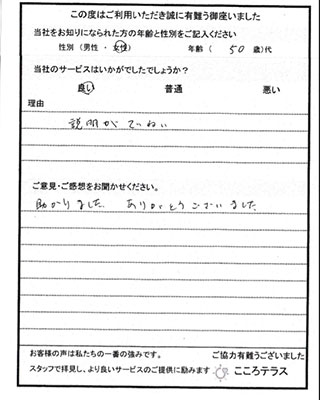 この度はご利用いただき誠に有難う御座いました
当社をお知りになられた方の年齢と性別をご記入ください
性別（男性 ・ 女性） 年齢（ 50 歳）代
当社のサービスはいかがでしたでしょうか？
良い 普通 悪い
理由
説明がていねい
ご意見・ご感想をお聞かせください。
助かりました ありがとうございました
お客様の声は私たちの一番の強みです。 ご協力有難うございました
スタッフで拝見し、より良いサービスのご提供に励みます こころテラス